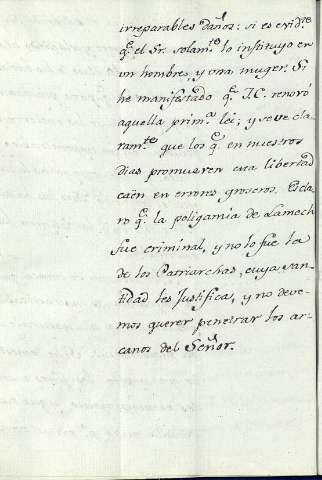 irreparables daños: si es evid.te
q.e el Sr. solam.te lo instituyo en
un hombre, y una muger. Si
he manifestado q.e J.C. renovó
aquella prim.a lei; y se ve cla
ram.te que los q.e en nuestros
dias promueven esta libertad
caén en errores groseros. Escla
ro q.e la poligamia de Lamech
fue criminal, y no lo fue la
de los Patriarchas, cuya san-
tidad les Justifica, y no deve-
mos querer penetrar los ar-
canos del Señor.